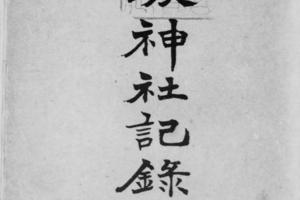 神社記錄